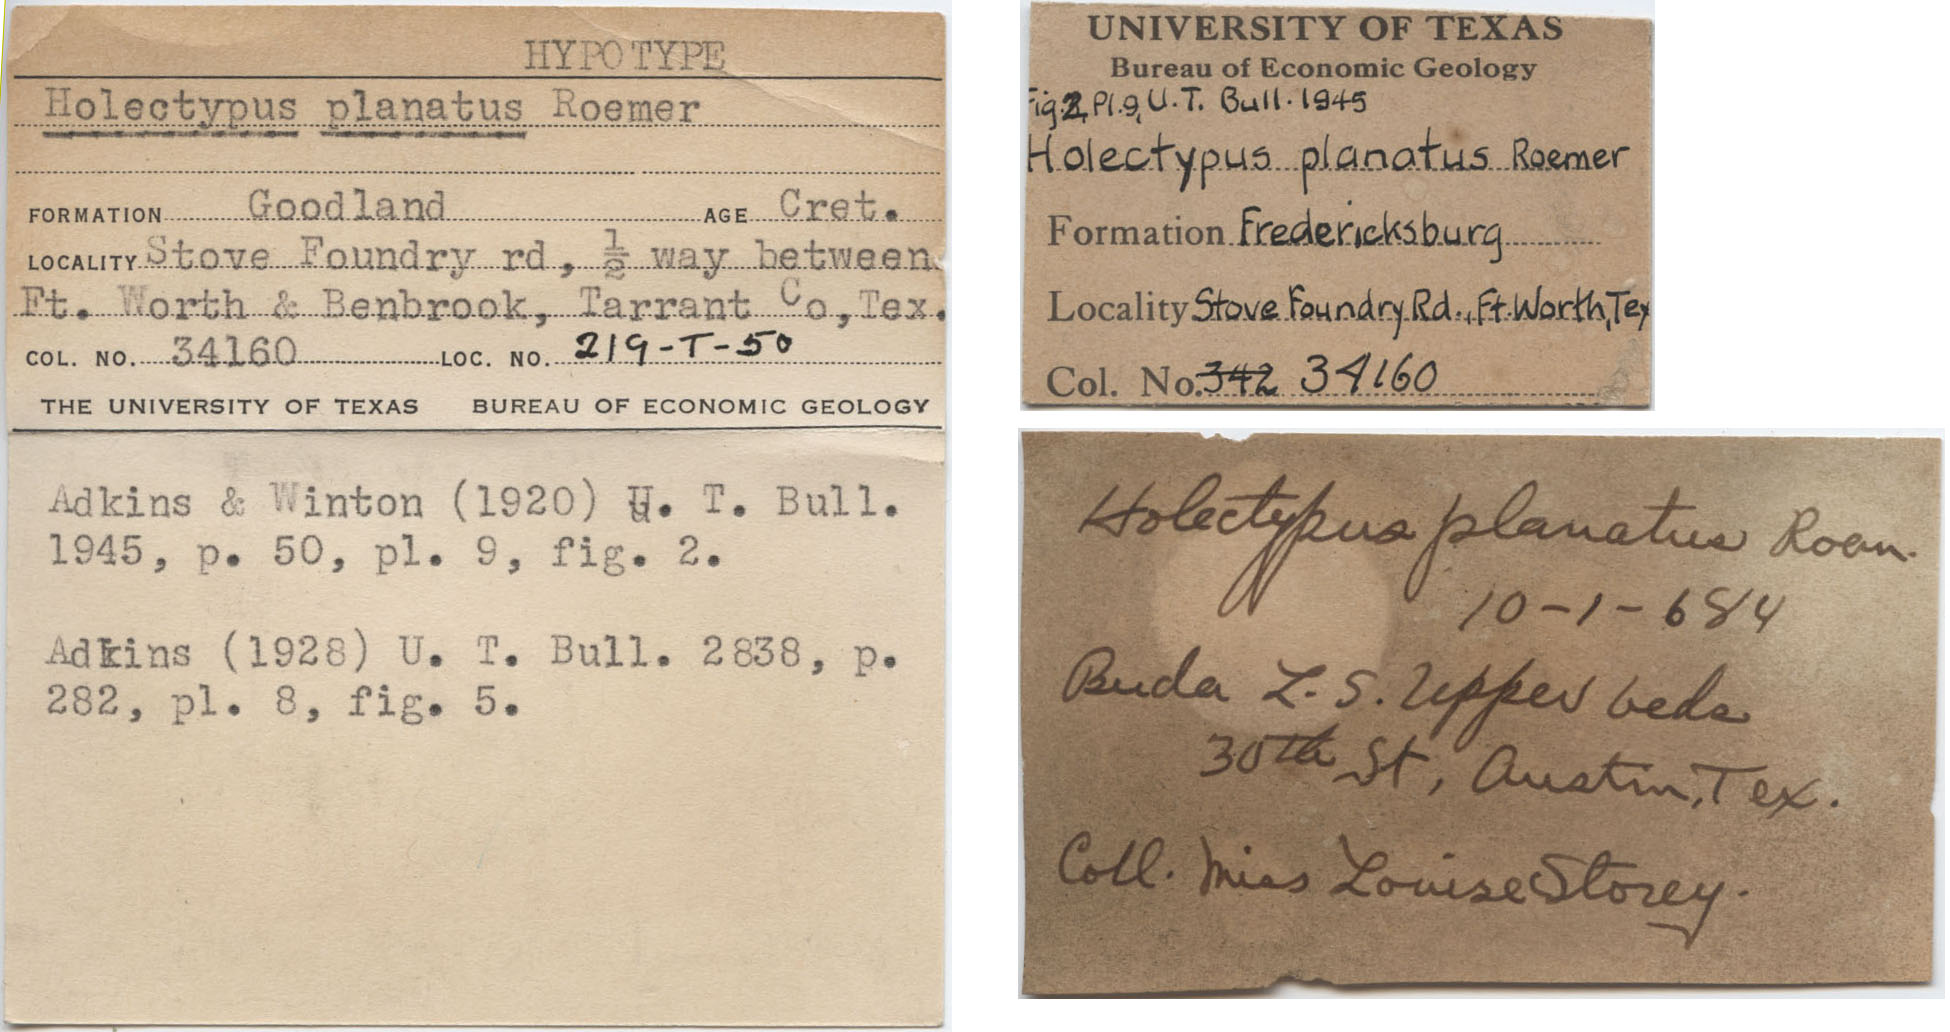 HYPOTYPE
Holectypus planatus Roemer
FORMATION Goodland AGE Cret.
LOCALITY Stove Foundry rd, ½ way between
Ft. Worth & Benbrook, Tarrant Co, Tex.
COL. NO. 34160 LOC. NO. 219-T-50
THE UNIVERSITY OF TEXAS BUREAU OF ECONOMIC GEOLOGY
Adkins & Winton (1920) U. T. Bull.
1945, p. 50, pl. 9, fig. 2.
Adkins (1928) U. T. Bull. 2838, p.
282, pl. 8, fig. 5.
UNIVERSITY OF TEXAS
Bureau of Economic Geology
Fig. 2, Pl. 9, U.T. Bull. 1945
Holectypus planatus Roemer
Formation Fredericksburg
Locality Stove Foundry Rd., Ft. Worth, Tex
Col. No. 342 34160
Holectypus planatus Roem.
10-1-684
Buda L.S. Upper beds
30th St, Austin, Tex.
Coll. Miss Louise Storey.